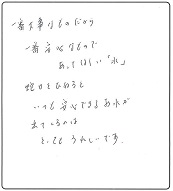 一番大事なものだから
一番安心なもので
あってほしい「水」
蛇口をひねると
いつも安心できるお水が
出てくるのは
とってもうれしいです。